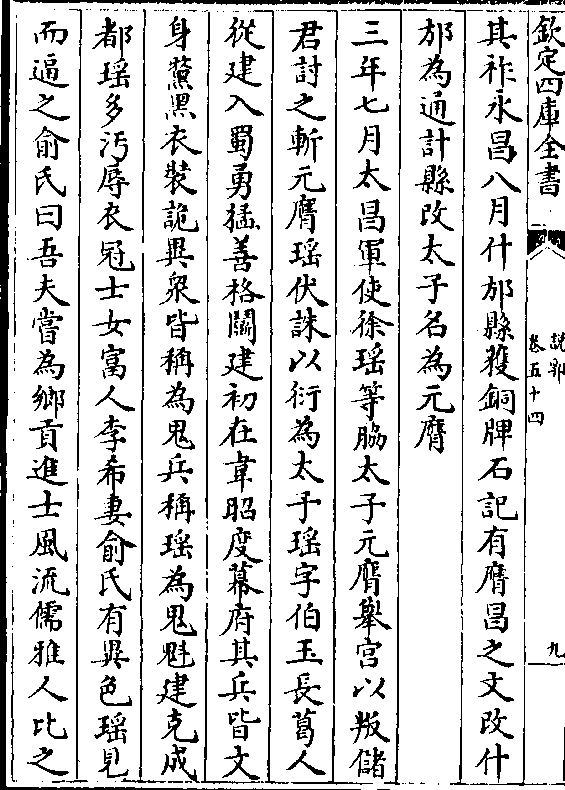 欽定四庫全書
說郛
卷五十四
九
其祚永昌八月什邡縣獲銅牌石記有膺昌之文改什
邡為通計縣改太子名為元膺
三年七月太昌軍使徐瑶等脇太子元膺舉宫以叛儲
君討之斬元膺瑶伏誅以衍為太子瑶字伯玉長葛人
從建入蜀勇猛善格鬭建初在韋昭度幕府其兵皆文
身黧黑衣裝詭異衆皆稱為鬼兵稱瑶為鬼魁建克成
都瑶多汚辱衣冠士女富人李希妻俞氏有異色瑶見
而逼之俞氏曰吾夫嘗為鄉貢進士風流儒雅人比之